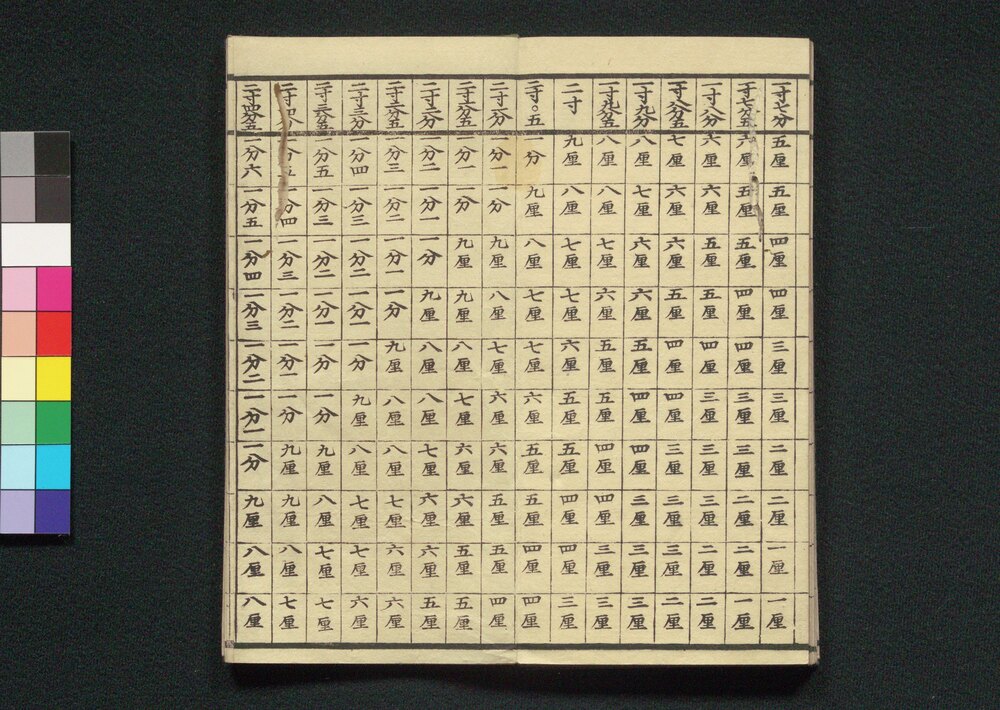 一寸七分 五厘 五厘 四厘 四厘 三厘 三厘 二厘 二厘 一厘 一厘
一寸七分五 六厘 五厘 五厘 四厘 四厘 三厘 三厘 二厘 二厘 一厘
一寸八分 六厘 六厘 五厘 五厘 四厘 三厘 三厘 三厘 二厘 二厘
一寸八分五 七厘 六厘 六厘 五厘 四厘 四厘 三厘 三厘 三厘 二厘
一寸九分 八厘 七厘 六厘 六厘 五厘 四厘 四厘 三厘 三厘 三厘
一寸九分五 八厘 八厘 七厘 六厘 五厘 五厘 四厘 四厘 三厘 三厘
二寸 九厘 八厘 七厘 七厘 六厘 五厘 五厘 四厘 四厘 三厘
二寸〇五 一分 九厘 八厘 七厘 七厘 六厘 五厘 五厘 四厘 四厘
二寸一分 一分一 一分 九厘 八厘 七厘 六厘 六厘 五厘 五厘 四厘
二寸一分五 一分一 一分 九厘 九厘 八厘 七厘 六厘 六厘 五厘 五厘
二寸二分 一分二 一分一 一分 九厘 八厘 八厘 七厘 六厘 六厘 五厘
二寸二分五 一分三 一分二 一分一 一分 九厘 八厘 八厘 七厘 六厘 六厘
二寸三分 一分四 一分三 一分二 一分一 一分 九厘 八厘 七厘 七厘 六厘
二寸三分五 一分五 一分三 一分二 一分一 一分 一分 九厘 八厘 七厘 七厘
二寸四分 一分五 一分四 一分三 一分二 一分一 一分 九厘 九厘 八厘 七厘
二寸四分五 一分六 一分五 一分四 一分三 一分二 一分一 一分 九厘 八厘 八厘